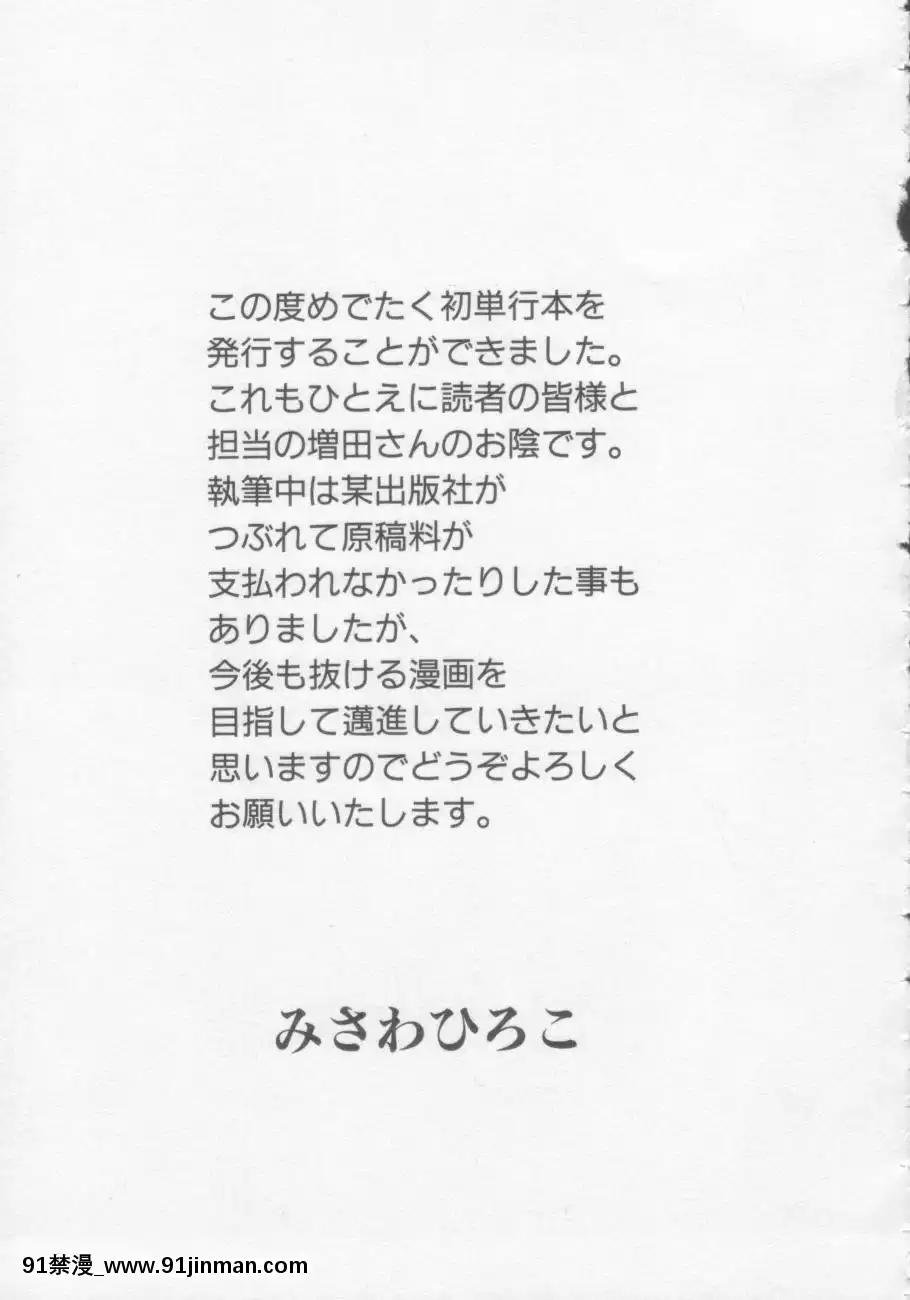 この度めでたく初単行本を
発行することができました。
これもひとえに読者の皆様と
担当の増田さんのお陰です。
執筆中は某出版社が
つぶれて原稿料が
支払われなかったりした事も
ありましたが、
今後も抜ける漫画を
目指して邁進していきたいと
思いますのでどうぞよろしく
お願いいたします。
みさわひろこ
91禁漫_www.91jinman.com